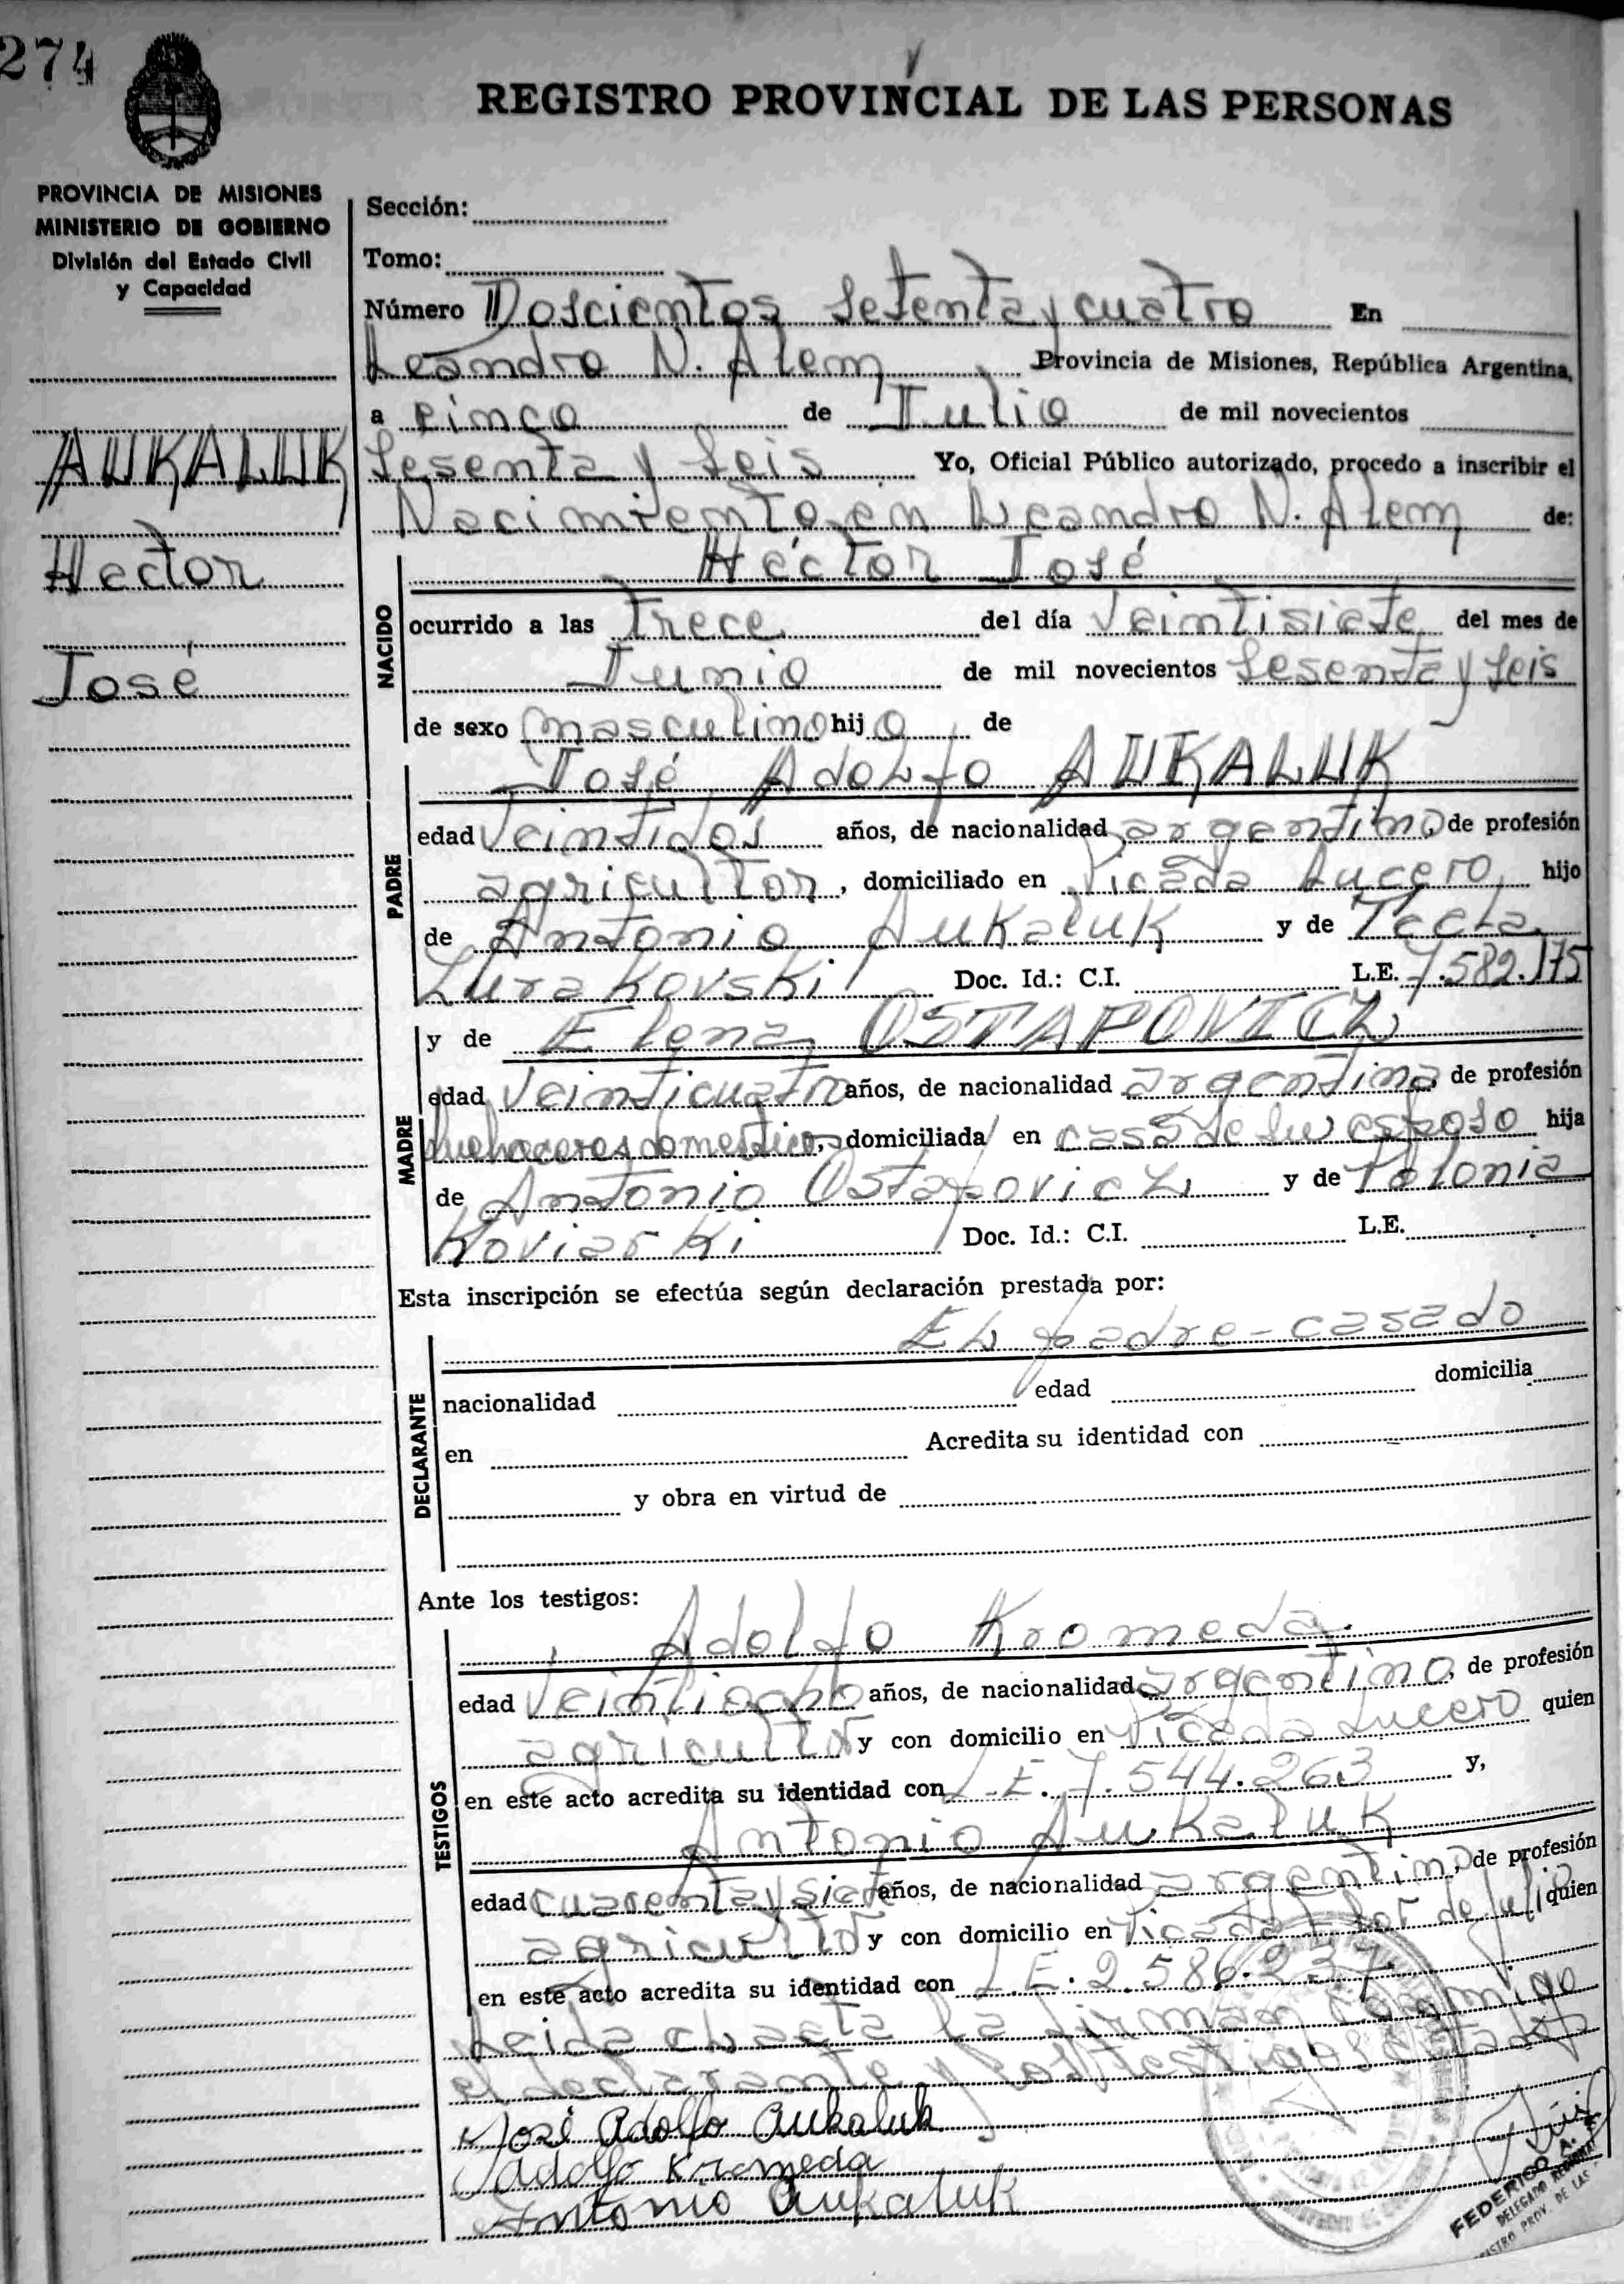 274
REGISTRO PROVINCIAL DE LAS PERSONAS
PROVINCIA DE MISIONES
MINISTERIO DE GOBIERNO
División del Estado Civil
y Capacidad
AUKALUK
Hector
José
Sección:
Tomo:
Número Doscientos setenta y cuatro En
Leandro N. Alem Provincia de Misiones, República Argentina,
a cinco de Julio de mil novecientos
sesenta y seis Yo, Oficial Público autorizado, procedo a inscribir el
Nacimiento en Leandro N. Alem de:
Héctor José
NACIDO
ocurrido a las trece del día veintisiete del mes de
Junio de mil novecientos sesenta y seis
de sexo masculino hijo de
José Adolfo AUKALUK
PADRE
edad veintidos años, de nacionalidad argentino, de profesión
agricultor, domiciliado en Picada Lucero, hijo
de Antonio Aukaluk y de Tecla
Zurakovski Doc. Id.: C.I. L.E. 7.582.175
y de Elena OSTAPOVICZ
MADRE
edad veinticuatro años, de nacionalidad argentina, de profesión
quehaceres domesticos, domiciliada en casa de su esposo hija
de Antonio Ostapovicz y de Polonia
Koviarski Doc. Id.: C.I. L.E.
Esta inscripción se efectúa según declaración prestada por:
El padre-casado
DECLARANTE
nacionalidad edad domicilia
en Acredita su identidad con
y obra en virtud de
Ante los testigos:
Adolfo Kromeda
TESTIGOS
edad veintiocho años, de nacionalidad argentino, de profesión
agricultor y con domicilio en Picada Lucero quien
en este acto acredita su identidad con L.E. 7.544.263 y,
Antonio Aukaluk
edad cuarenta y siete años, de nacionalidad argentino, de profesión
agricultor y con domicilio en Picada Flor de Julio quien
en este acto acredita su identidad con L.E. 2.586.237
Leida el acta la firman conmigo
el declarante y los testigos citados
José Adolfo Aukaluk
Adolfo Kromeda
Antonio Aukaluk
FEDERICO A.
DELEGADO
PROV. DE LAS